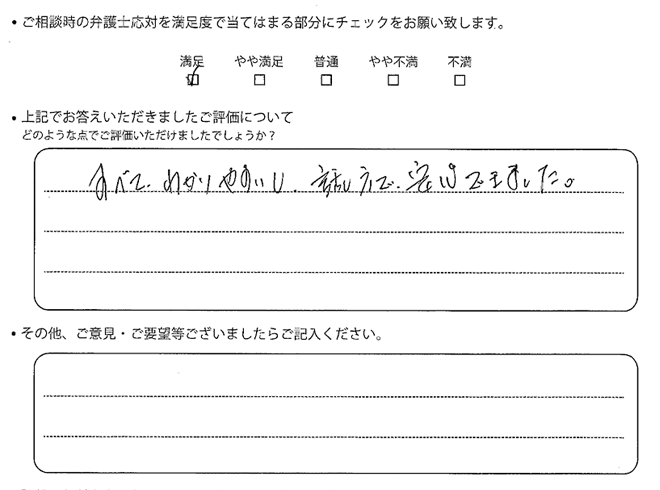 • ご相談時の弁護士応対を満足度で当てはまる部分にチェックをお願い致します。
満足 やや満足 普通 やや不満 不満
• 上記でお答えいただきましたご評価について
どのような点でご評価いただけましたでしょうか？
すべて、わかりやすいし、話し方で、安心できました。
• その他、ご意見・ご要望等ございましたらご記入ください。